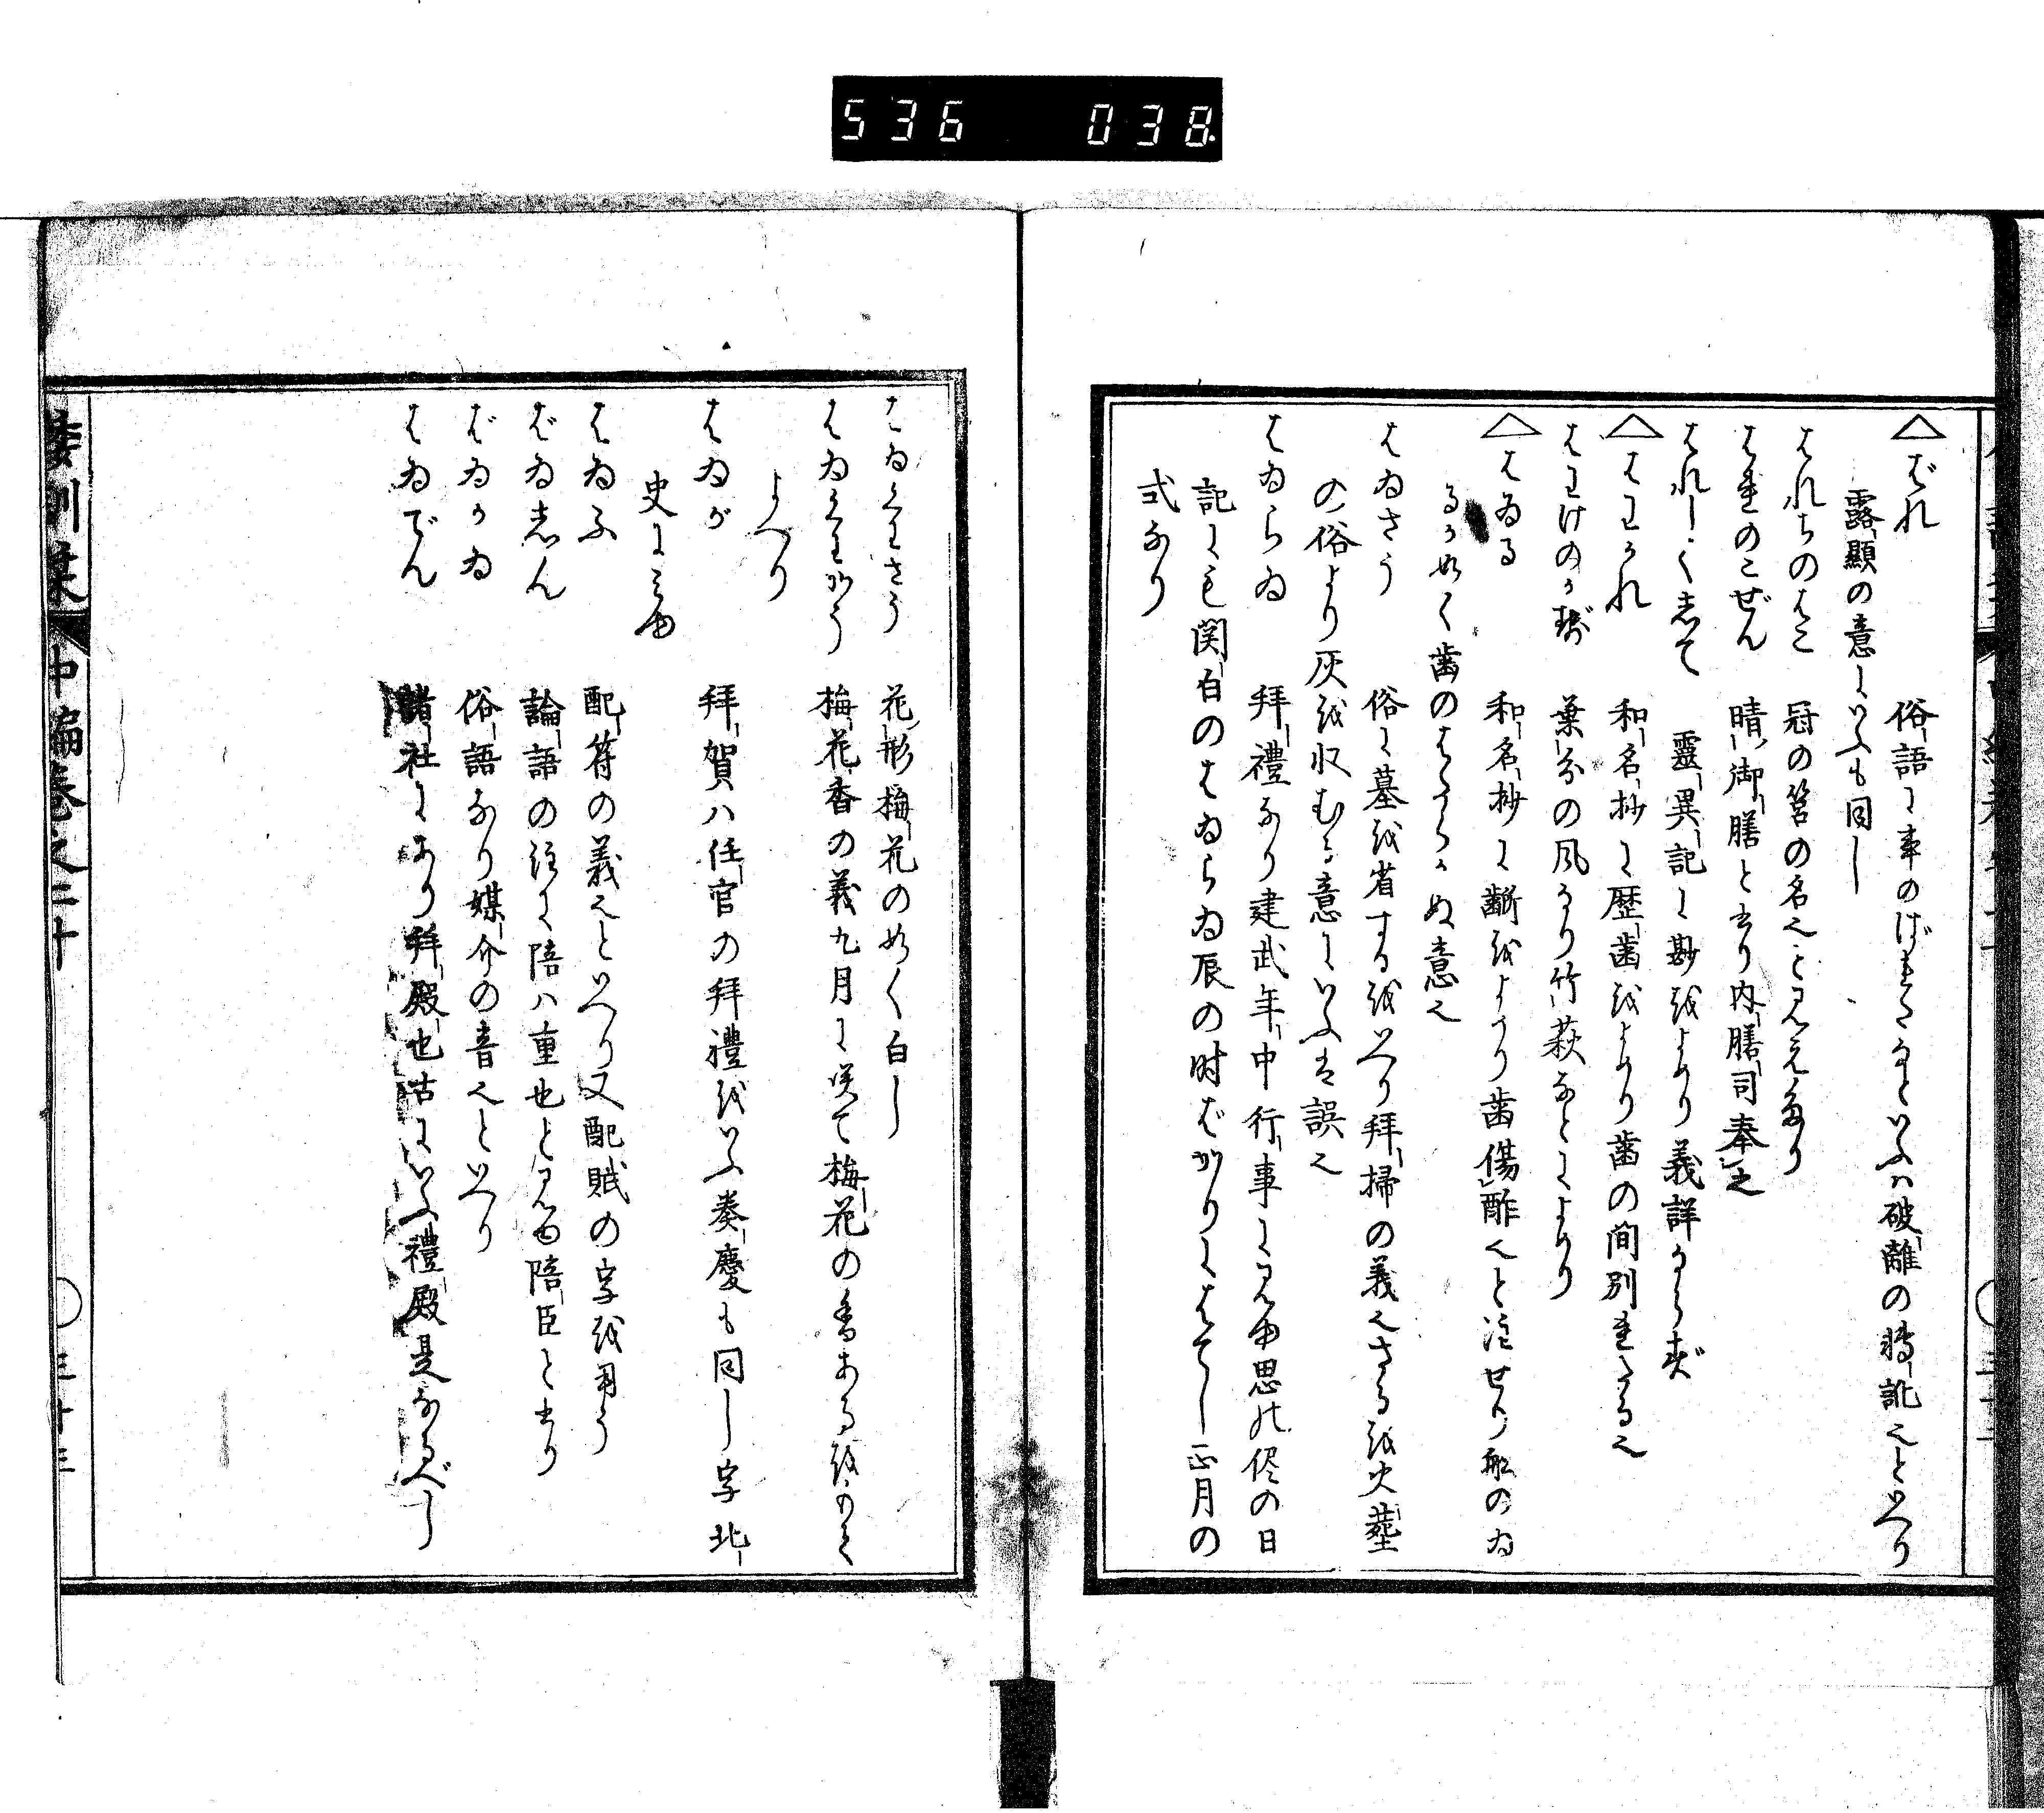 536 038
△ばれ 俗語に事のばれたなといふハ破離の轉訛也といへり
露顯の意にいふも同し
はれちのはこ 冠の筥の名也と見えたり
はれのごぜん 晴御膳と書り内膳司奉之
はれーくして 靈異記に尠をよめり義詳ならず
△はわかれ 和名抄に歴歯をよめり歯の間別れたる也
はわけのかぜ 葉分の風なり竹萩なとによめり
△はゐる 和名抄に齭をよめり歯傷酢也と注せり
るか如く歯のはたらかぬ意也
はゐさう 俗に墓を省するをいへり拜掃の義也さるを火葬
の俗より灰を收むる意にいふは誤也
はゐらゐ 拜禮なり建武年中行事に見ゆ
記にも関白のはゐらゐ辰の时ばかりにはてし正月の
式なり
花形梅花の如く白し
梅花香の義九月に咲て梅花の香あるをもて
よべり
はゐが 拜賀ハ任官の拜禮をいふ奏慶も同し字北
史に見ゆ
はゐふ 配符の義也といへり又配賦の字を用う
ばゐしん 論語の注に陪ハ重也と見ゆ陪臣と書り
ばゐかゐ 俗語なり媒介の音也といへり
はゐでん 諸社にあり拜殿也古にいふ禮殿是なるべし
倭訓栞 中編巻之二十 三十三